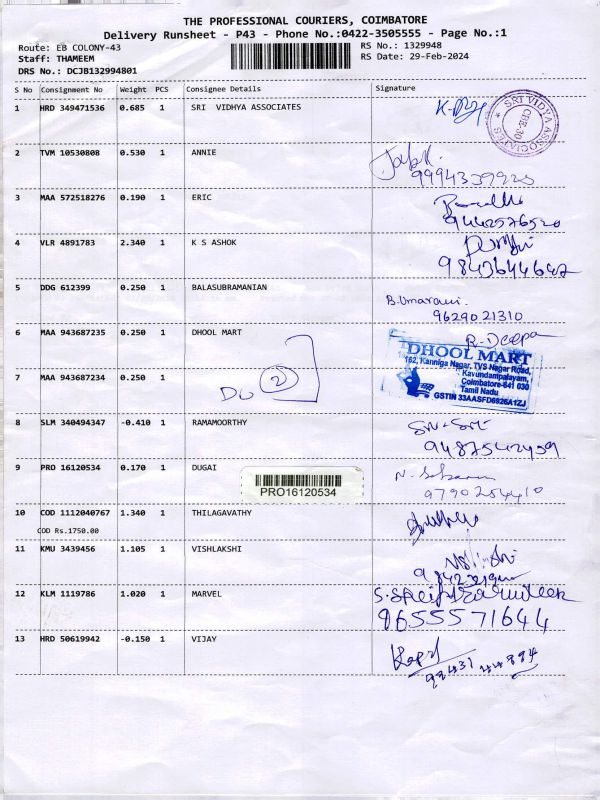 THE PROFESSIONAL COURIERS, COIMBATORE
Delivery Runsheet - P43 - Phone No.:0422-3505555 - Page No.:1
Route: EB COLONY-43 RS No.: 1329948
Staff: THAMEEM RS Date: 29-Feb-2024
DRS No.: DCJB132994801
S No Consignment No Weight PCS Consignee Details Signature
1 HRD 349471536 0.685 1 SRI VIDHYA ASSOCIATES
SRI VIDYA ASSOCIATES
CBE-30
2 TVM 10530808 0.530 1 ANNIE
3 MAA 572518276 0.190 1 ERIC
9442576520
4 VLR 4891783 2.340 1 K S ASHOK
9843644647
5 DDG 612399 0.250 1 BALASUBRAMANIAN
B.Umarani
9629021310
6 MAA 943687235 0.250 1 DHOOL MART
R-Deepa
7 MAA 943687234 0.250 1
2
DHOOL MART
162, Kanniga Nagar, TVS Nagar Road,
Kavundampalayam,
Coimbatore-641 030
Tamil Nadu
GSTIN 33AASFD6926A1ZJ
8 SLM 340494347 -0.410 1 RAMAMOORTHY
9487542459
9 PRO 16120534 0.170 1 DUGAI
PRO16120534
9790254410
10 COD 1112040767 1.340 1 THILAGAVATHY
COD Rs.1750.00
11 KMU 3439456 1.105 1 VISHLAKSHI
12 KLM 1119786 1.020 1 MARVEL
9655571644
13 HRD 50619942 -0.150 1 VIJAY